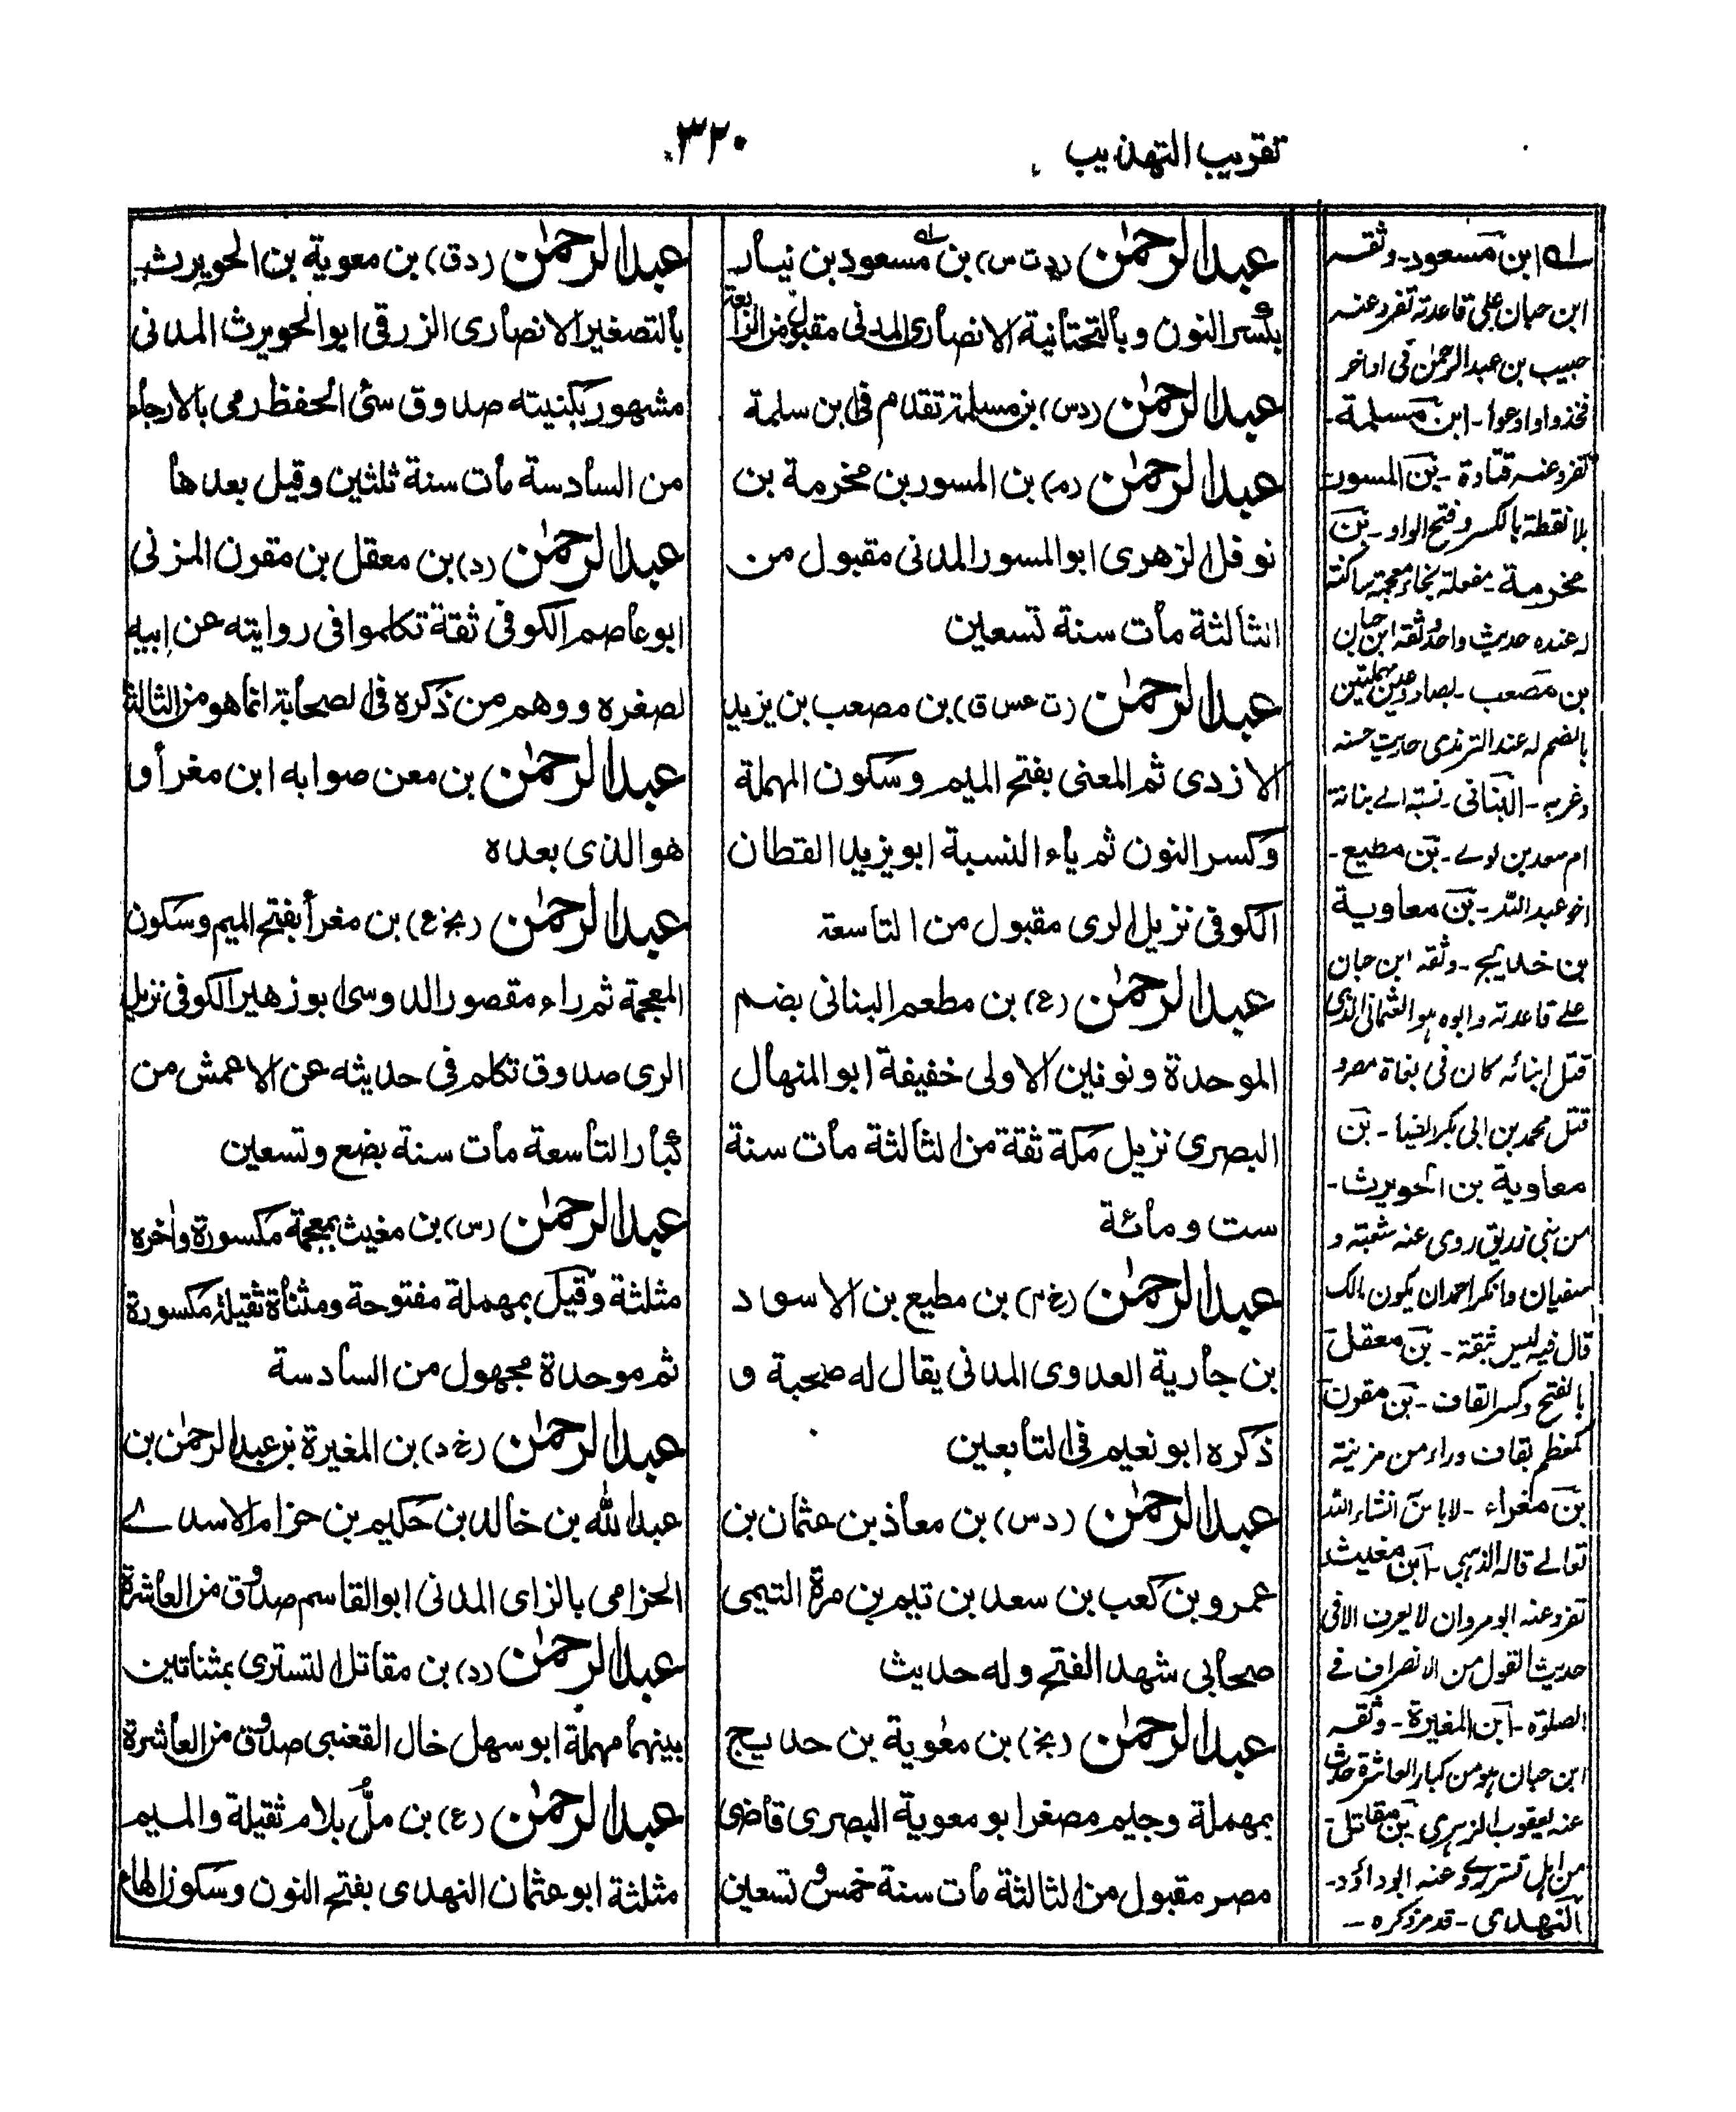 تقريب التهذيب
٣٢٠
عبدالرحمٰن (د ت س) بن مسعود بن نيار
بكسر النون وبالتحتانية الانصارى المدنى مقبول من الرابعة
عبدالرحمٰن (د س) بن مسلمة تقدم فى ابن سلمة
عبدالرحمٰن (م) بن المسور بن مخرمة بن
نوفل الزهرى ابو المسور المدنى مقبول من
الثالثة مات سنة تسعين
عبدالرحمٰن (ت عس ق) بن مصعب بن يزيد
الازدى ثم المعنى بفتح الميم وسكون المهملة
وكسر النون ثم ياء النسبة ابو يزيد القطان
الكوفى نزيل الرى مقبول من التاسعة
عبدالرحمٰن (ع) بن مطعم البنانى بضم
الموحدة ونونين الاولى خفيفة ابو المنهال
البصرى نزيل مكة ثقة من الثالثة مات سنة
ست ومائة
عبدالرحمٰن (خ م) بن مطيع بن الاسود
بن جارية العدوى المدنى يقال له صحبة و
ذكره ابو نعيم فى التابعين
عبدالرحمٰن (د س) بن معاذ بن عثمان بن
عمرو بن كعب بن سعد بن تيم بن مرة التيمى
صحابى شهد الفتح وله حديث
عبدالرحمٰن (بخ) بن معٰوية بن حديج
بمهملة وجيم مصغرا ابو معوية البصرى قاضى
مصر مقبول من الثالثة مات سنة خمس وتسعين
عبدالرحمٰن (د ق) بن معوية بن الحويرث
بالتصغير الانصارى الزرقى ابو الحويرث المدنى
مشهور بكنيته صدوق سئ الحفظ رمى بالارجاء
من السادسة مات سنة ثلثين وقيل بعدها
عبدالرحمٰن (د) بن معقل بن مقرن المزنى
ابو عاصم الكوفى ثقة تكلموا فى روايته عن ابيه
لصغره ووهم من ذكره فى الصحابة انما هو من الثالثة
عبدالرحمٰن بن معن صوابه ابن مغرا و
هو الذى بعده
عبدالرحمٰن (بخ ع) بن مغرا بفتح الميم وسكون
المعجمة ثم راء مقصور الدوسى ابو زهير الكوفى نزيل
الرى صدوق تكلم فى حديثه عن الاعمش من
كبار التاسعة مات سنة بضع وتسعين
عبدالرحمٰن (س) بن مغيث بمعجمة مكسورة واٰخره
مثلثة وقيل بمهملة مفتوحة ومثناة ثقيلة مكسورة
ثم موحدة مجهول من السادسة
عبدالرحمٰن (خ د) بن المغيرة بن عبدالرحمٰن بن
عبدالله بن خالد بن حكيم بن حزام الاسدے
الحزامى بالزاى المدنى ابو القاسم صدوق من العاشرة
عبدالرحمٰن (د) بن مقاتل التسترى بمثناتين
بينهما مهملة ابو سهل خال القعنبى صدوق من العاشرة
عبدالرحمٰن (ع) بن ملٌ بلام ثقيلة والميم
مثلثة ابو عثمان النهدى بفتح النون وسكون الهاء
لے ابن مسعود۔ وثقه
ابن حبان على قاعدته تفرد عنه
حبيب بن عبدالرحمٰن فى اواخر
فخذوا وادعوا۔ ابن مسلمة۔
تفرد عنه قتادة۔ بن المسور
بلا نقطة بالكسر وفتح الواو۔ بن
مخرمة۔ مفعلة بخاء معجمة ساكنة
له عنده حديث واحد وثقه ابن حبان
بن مصعب۔ بصاد وعين مهملتين
بالضم له عند الترمذى حديث حسنه
وغربه۔ البنانى۔ نسبة الے بنانة
ام سعد بن لوے۔ بن مطيع۔
اخو عبد الله۔ بن معاوية
بن خديج۔ وثقه ابن حبان
علے قاعدته وابوه هو العثمانى الذى
قتل ابنائه كان فى بغاة مصر و
قتل محمد بن ابى بكر ايضا۔ بن
معاوية بن الحويرث۔
من بنى زريق روى عنه شعبة و
سفيان وانكر احمد ان يكون مالك
قال فيه ليس بثقة۔ بن معقل
بالفتح وكسر القاف۔ بن مقرن
كمعظم بقاف وراء من مزينة
بن مغراء۔ لا باس انشاء الله
تعالے قاله الذهبى۔ ابن مغيث
تفرد عنه ابو مروان لا يعرف الا فى
حديث القول من الانصراف فے
الصلوٰة۔ ابن المغيرة۔ وثقه
ابن حبان هو من كبار العاشرة حدث
عنه يعقوب الزهرى۔ بن مقاتل
من اهل تستر وے عنه ابو داؤد۔
النهدى۔ قد مر ذكره۔